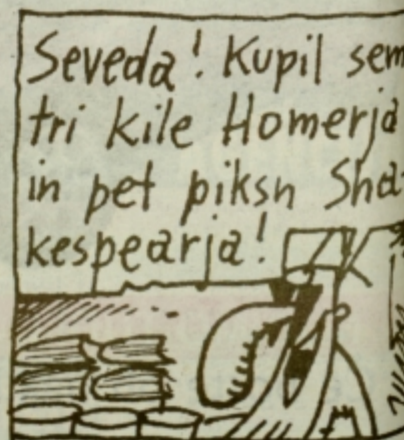 Seveda! Kupil sem
tri kile Homerja
in pet piksn Sha-
kespearja!